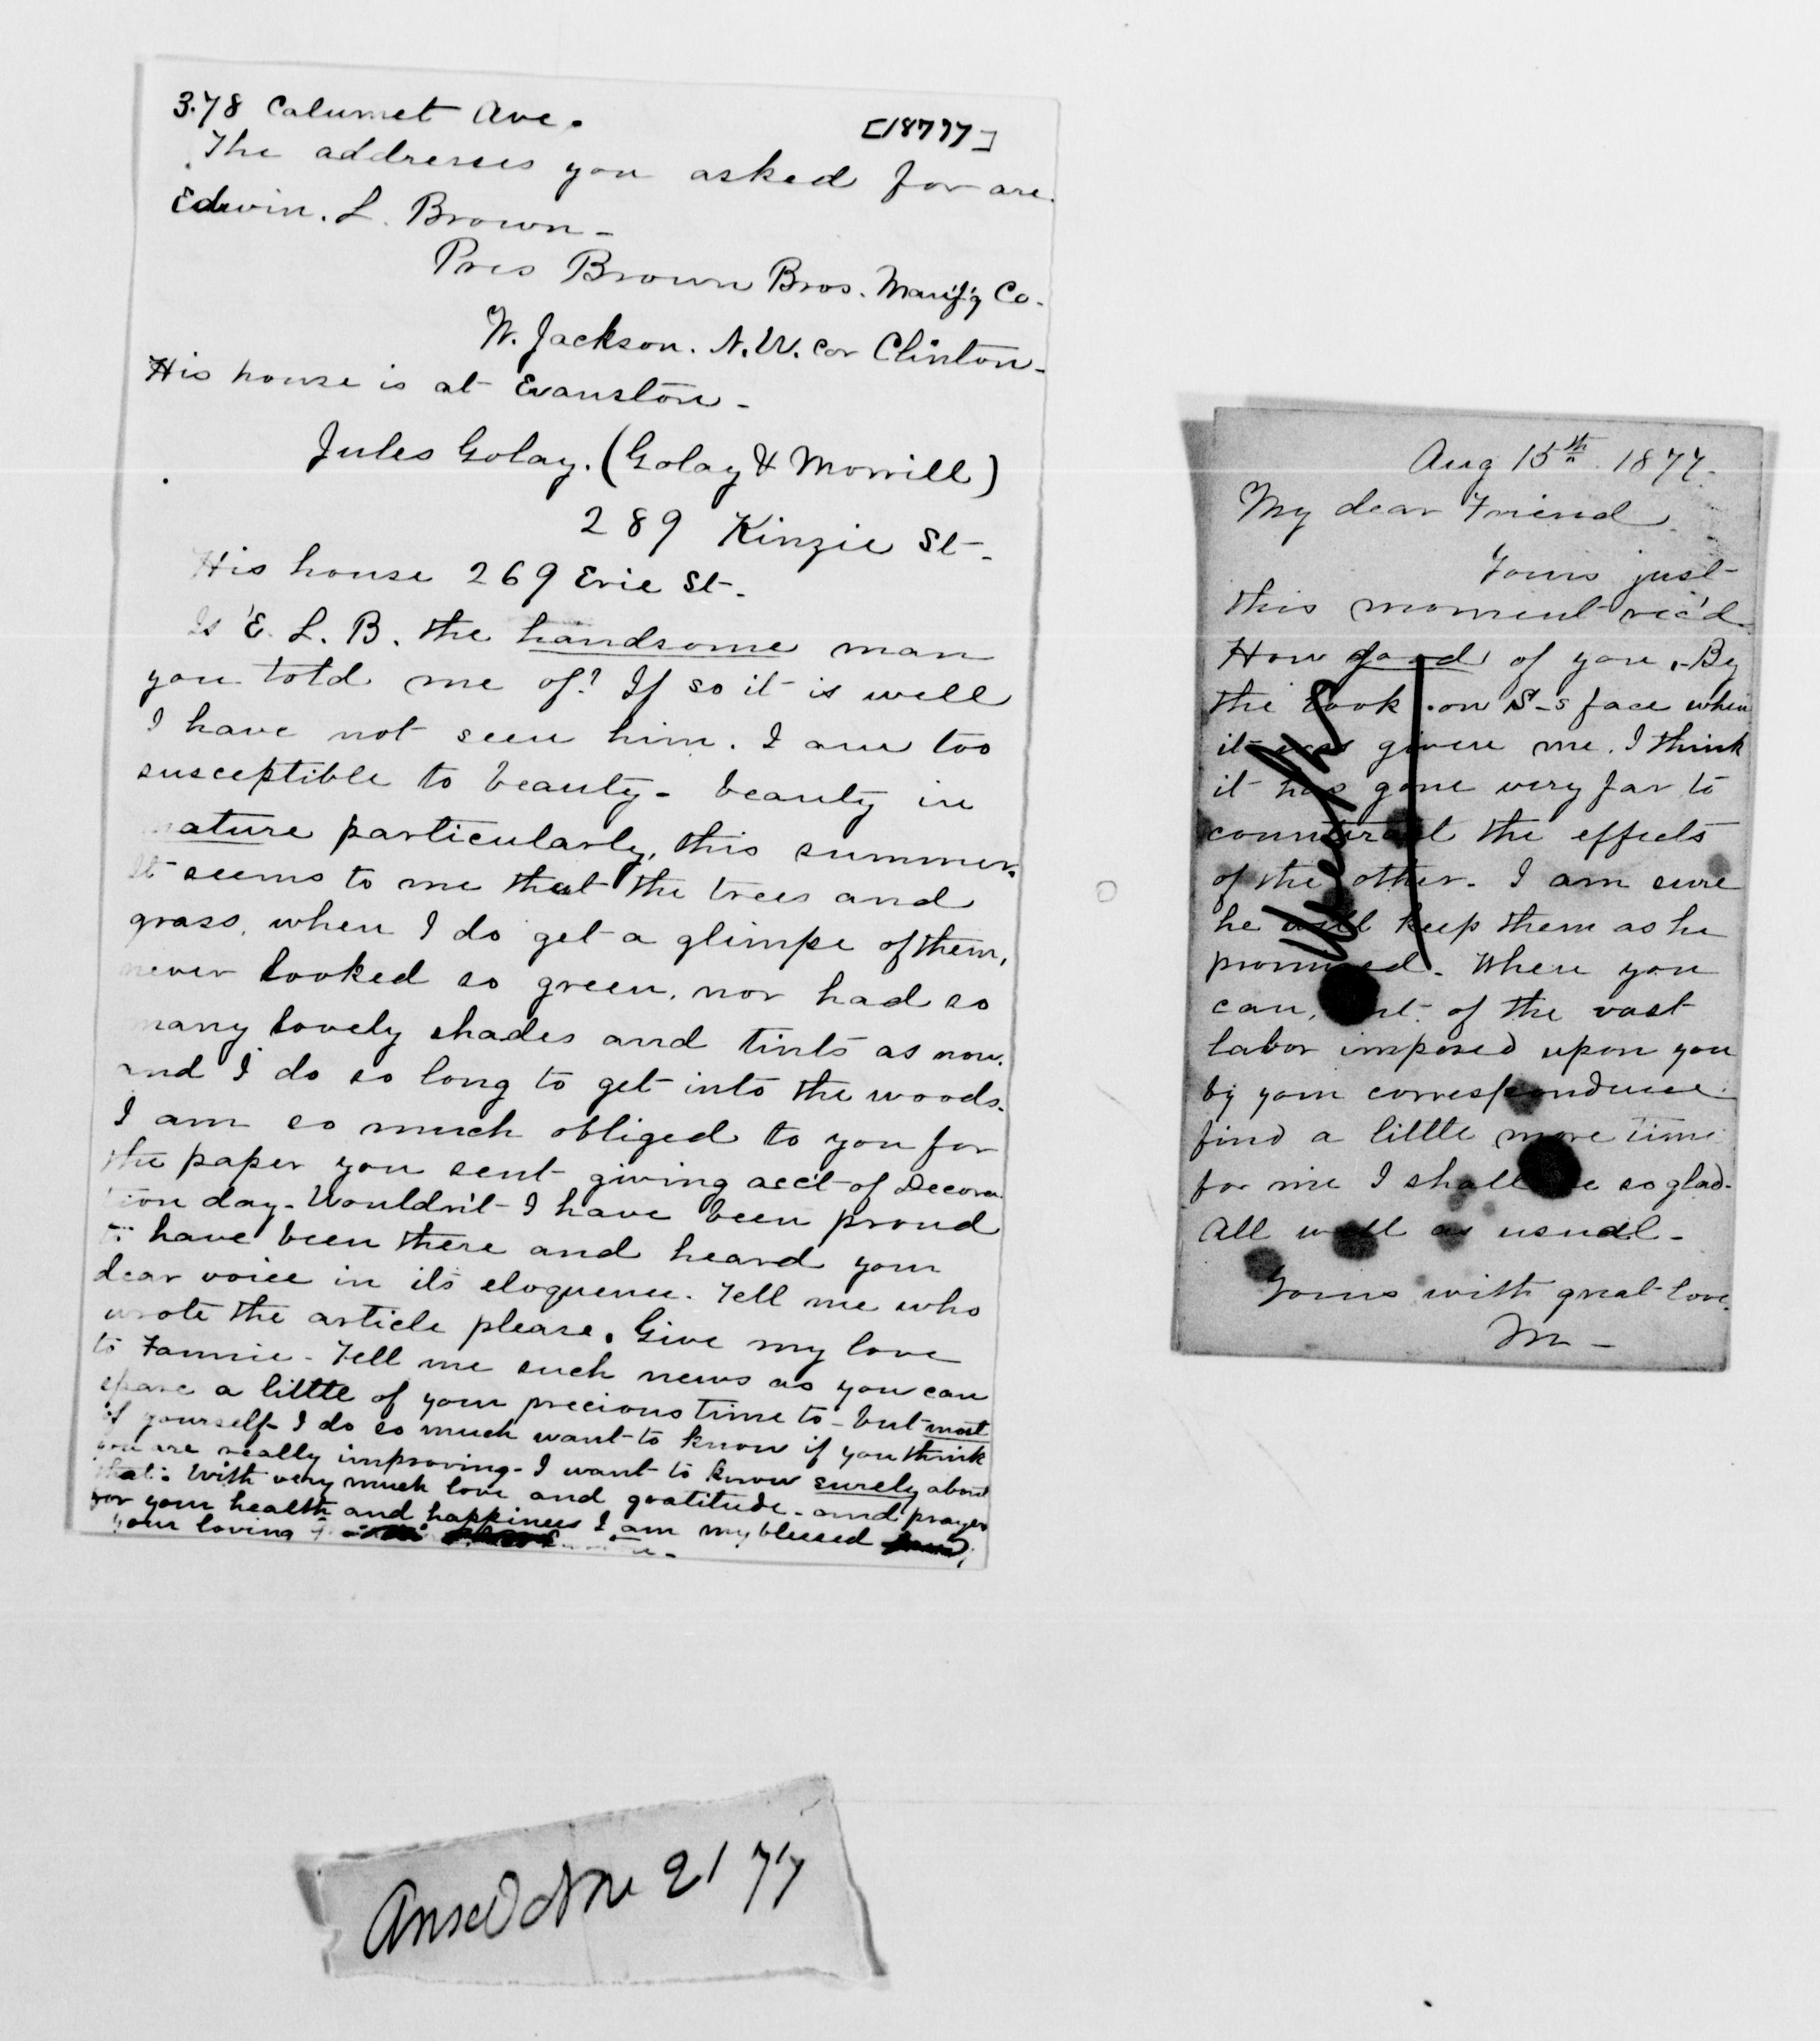 378 Calumet Ave.
[1877]
The addresses you asked for are.
Edwin. L. Brown -
Pres Brown Bros. Manf'g Co.
W. Jackson. N. W. cor Clinton -
His house is at Evanston -
Jules Golay. (Golay & Morrill)
289 Kinzie St -
His house 269 Erie St -
Is E. L. B. the handsome man
you told me of? If so it is well
I have not seen him. I am too
susceptible to beauty - beauty in
nature particularly, this summer.
It seems to me that the trees and
grass, when I do get a glimpse of them,
never looked so green, nor had so
many lovely shades and tints as now.
and I do so long to get into the woods.
I am so much obliged to you for
the paper you sent giving acc't of Decora
tion day - Wouldn't I have been proud
to have been there and heard your
dear voice in its eloquence. Tell me who
wrote the article please. Give my love
to Fannie - Tell me such news as you can
spare a little of your precious time to - but most
of yourself - I do so much want to know if you think
you are really improving - I want to know surely about
that. With very much love and gratitude - and prayers
for your health and happiness I am my blessed
your loving
Aug 15th 1877.
My dear Friend
Yours just
this moment rec'd
How good of you. By
the look on S-s face when
it was given me. I think
it has gone very far to
counteract the effects
of the other. I am sure
he will keep them as he
promised. When you
can, of the vast
labor imposed upon you
by your correspondence
find a little more time
for me I shall be so glad.
All well as usual -
Yours with great love.
M -
Ansed Nov 21 77